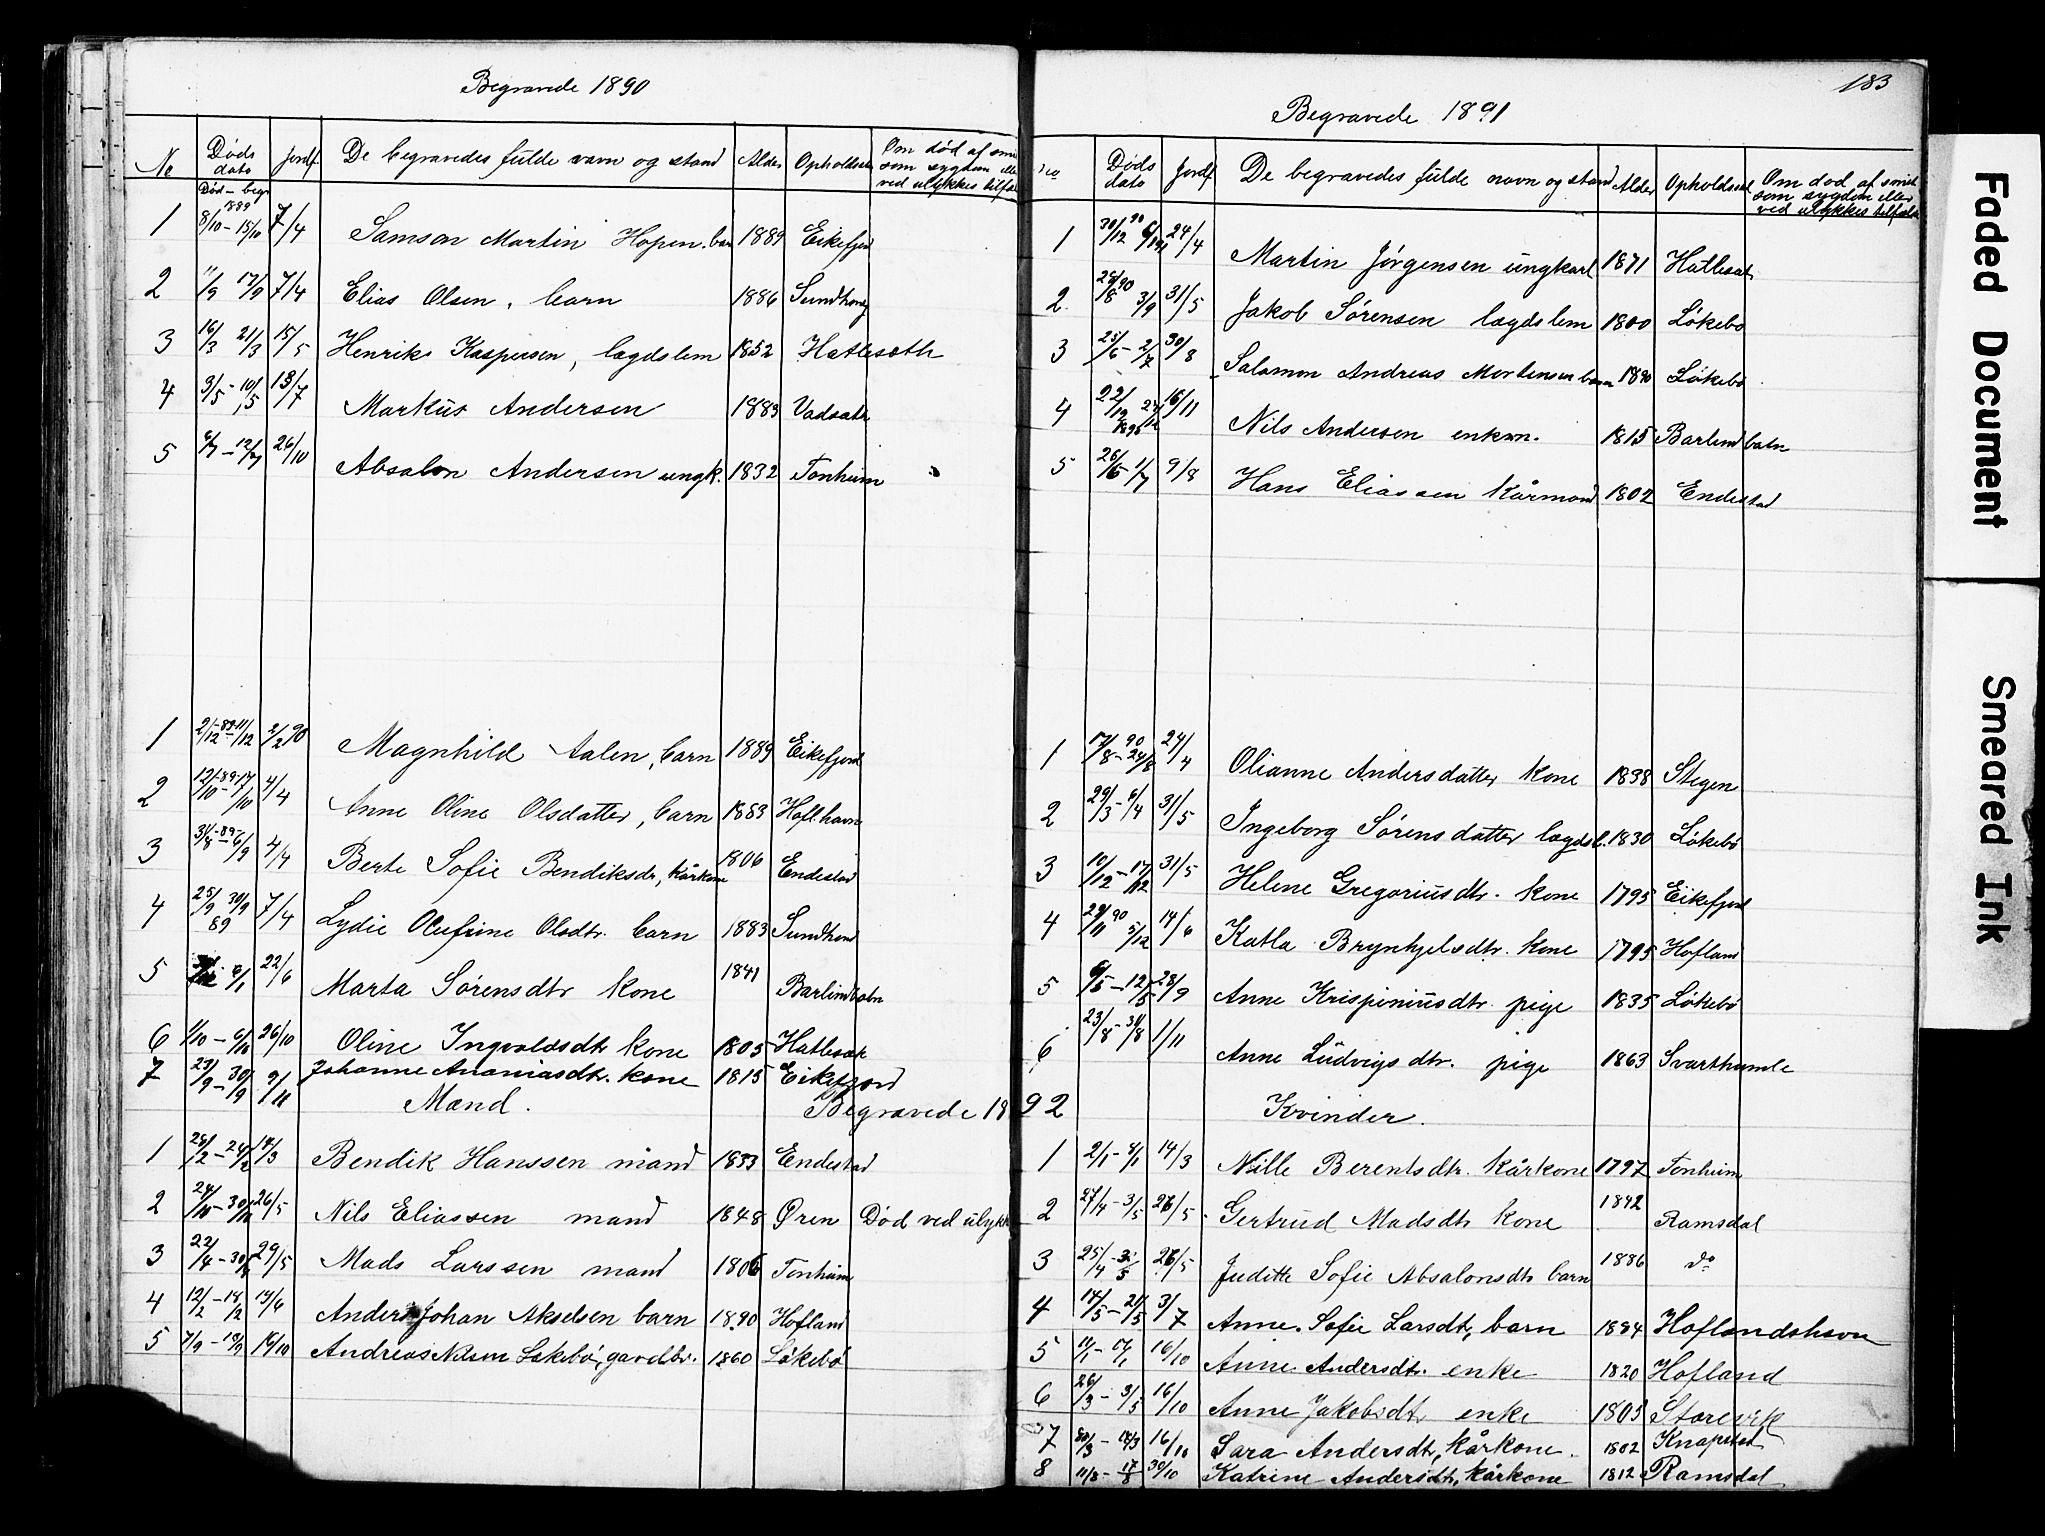 Begravede 1890
No | Døds dato | Jordf. | De begravedes fulde navn og stand | Alder | Opholdssted | Om død af smitsom sygdom eller ved ulykkes tilfælde
Død - begr
1 | 8/10 - 1889 15/10 | 7/4 | Samson Martin Hopen. barn | 1889 | Eikefjord
2 | 11/9 17/9 | 7/4 | Elias Olsen, barn | 1886 | Sundhong
3 | 16/3 21/3 | 15/5 | Henrik Kaspersen, lægdslem | 1852 | Hatlesæth
4 | 3/5 - 10/5 | 13/7 | Markus Andersen | 1883 | Vadsæth
5 | 6/7 - 12/7 | 26/10 | Absalon Andersen ungk. | 1832 | Tonheim
1 | 2/12 - 89 - 11/12 | 2/2 90 | Magnhild Aalen, barn | 1889 | Eikefjord
2 | 12/10 - 89 - 17/10 | 4/4 | Anne Oline Olsdatter, barn | 1883 | Hofl.havn
3 | 31/8 - 89 - 6/9 | 4/4 | Berte Sofie Bendiksdr, kårkone | 1806 | Endestad
4 | 25/9 30/9 89 | 7/4 | Lydie Olufine Olsdtr. barn | 1883 | Sundhond
5 | 7/1 | 22/6 | Marta Sørensdtr kone | 1841 | Barlindbotn
6 | 1/10 - 6/10 | 26/10 | Oline Ingvaldsdtr kone | 1805 | Hatlesæt
7 | 23/9 - 30/9 | 9/11 | Johanne Ananiasdtr. kone | 1815 | Eikefjord
Mand. Begravede 18
1 | 28/2 - 24/2 | 14/3 | Bendik Hanssen mand | 1833 | Endestad
2 | 24/10 - 30/10 | 26/5 | Nils Eliassen mand | 1848 | Øren | Død ved ulykk
3 | 22/4 - 30/4 | 29/5 | Mads Larssen mand | 1806 | Tonheim
4 | 12/2 - 18/2 | 19/6 | Anders Johan Akselsen barn | 1890 | Hofland
5 | 7/9 - 19/9 | 16/10 | Andreas Nilsen Løkebø, gardbr. | 1860 | Løkebø
183
Begravede 1891
No | Døds dato | Jordf | De begravedes fulde navn og stand | Alder | Opholdssted | Om død af smitsom sygdom eller ved ulykkes tilfælde
1 | 30/12 90 6/1 91 | 24/4 | Martin Jørgensen ungkarl | 1871 | Hatlesæt
2. | 28/8 90 3/9 | 31/5 | Jakob Sørensen lægdslem | 1800 | Løkebø
3 | 25/6 - 2/7 | 30/8 | Salomon Andreas Mortensen barn | 1890 | Løkebø
4 | 22/12 27/12 1890 | 16/11 | Nils Andersen enkem. | 1815 | Barlindbotn
5 | 26/6 1/7 | 9/8 | Hans Eliassen kårmand | 1802 | Endestad
1 | 17/8 - 90 24/8 | 24/4 | Olianne Andersdatter kone | 1838 | Stegen
2 | 29/3 - 6/4 | 31/5 | Ingeborg Sørensdatter lægdsl. | 1830 | Løkebø
3 | 10/12 - 17/12 | 31/5 | Helene Gregoriusdtr. kone | 1795 | Eikefjord
4 | 29/11 90 5/12 | 14/6 | Katla Brynhjelsdtr. kone | 1795 | Hofland
5 | 6/5 - 12/5 | 28/9 | Anne Krispiniusdtr. pige | 1835 | Løkebø
6 | 23/8 - 31/8 | 1/11 | Anne Ludvigsdtr. pige | 1863 | Svarthumle
92 Kvinder.
1 | 2/1 - 8/1 | 14/3 | Nille Berentsdtr. kårkone | 1797 | Tonheim
2 | 27/4 - 3/5 | 26/5 | Gertrud Madsdtr kone | 1842 | Ramsdal
3 | 25/4 - 3/5 | 26/5 | Juditte Sofie Absalonsdtr barn | 1886 | do
4 | 14/5 - 21/5 | 3/7 | Anne Sofie Larsdtr, barn | 1884 | Hoflandshavn
5 | 11/1 - 17/1 | 16/10 | Anne Andersdtr. enke | 1820 | Hofland
6 | 26/3 - 3/5 | 16/10 | Anne Jakobsdtr enke | 1805 | Storevik
7 | 30/3 | 16/10 | Sara Andersdtr, kårkone. | 1802 | Knapstad
8 | 11/8 - 17/8 | 30/10 | Katrine Andersdtr, kårkone | 1812 | Ramsdal
Faded Document
Smeared Ink